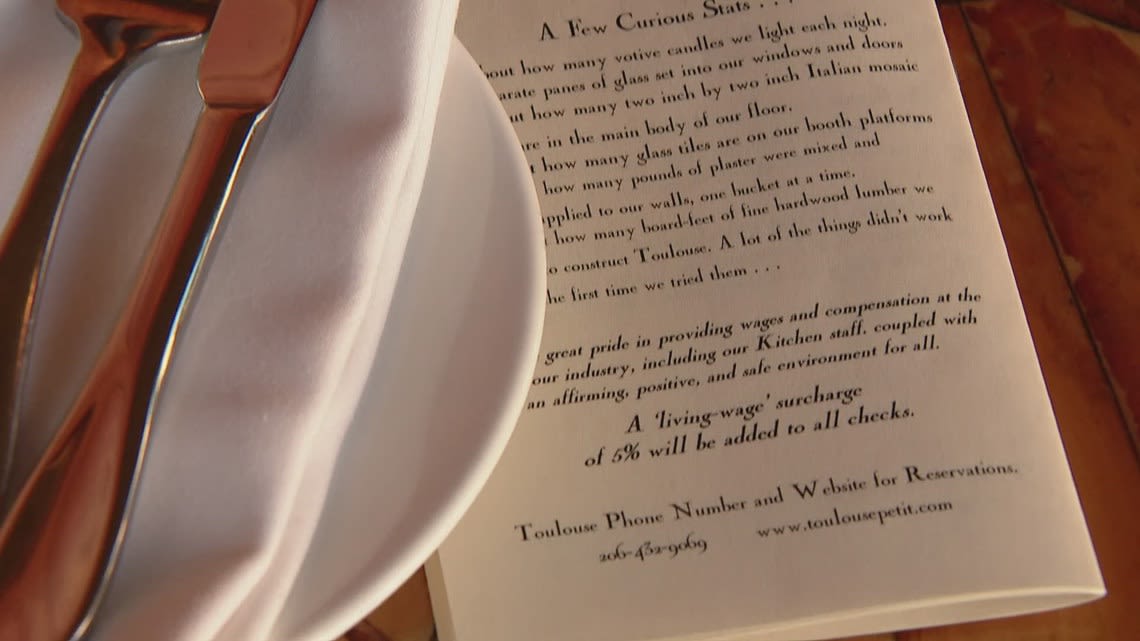 A Few Curious Stats . . .
how many votive candles we light each night.
panes of glass set into our windows and doors
how many two inch by two inch Italian mosaic
in the main body of our floor.
how many glass tiles are on our booth platforms
how many pounds of plaster were mixed and
to our walls, one bucket at a time.
how many board-feet of fine hardwood lumber we
construct Toulouse. A lot of the things didn't work
first time we tried them . . .
great pride in providing wages and compensation at the
our industry, including our Kitchen staff, coupled with
an affirming, positive, and safe environment for all.
A 'living-wage' surcharge
of 5% will be added to all checks.
Toulouse Phone Number and Website for Reservations.
206-432-9069 www.toulousepetit.com